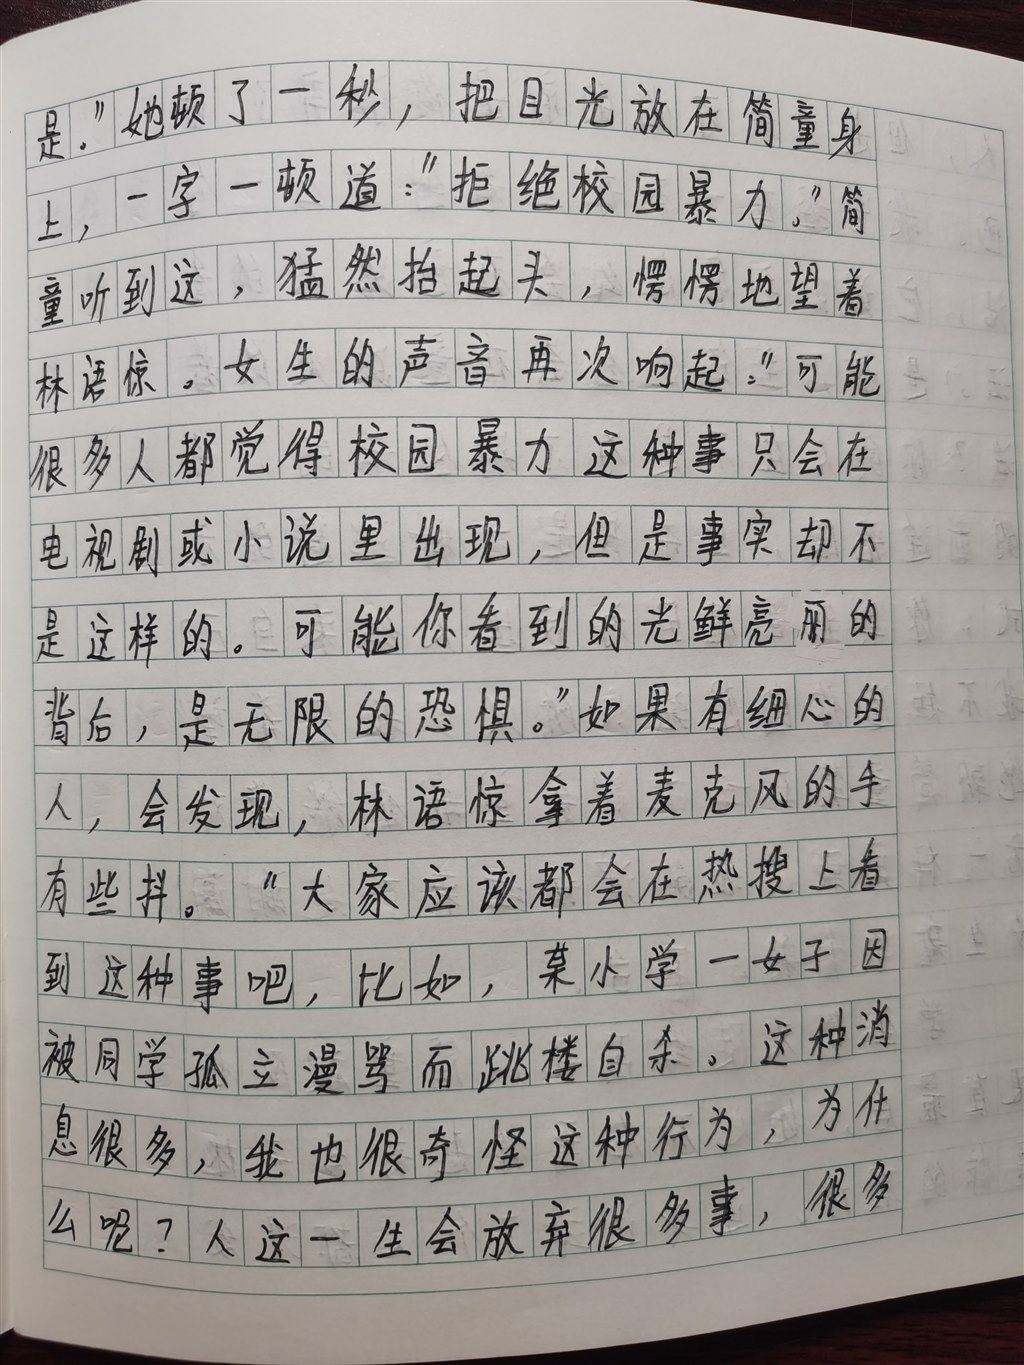 是。”她顿了一秒，把目光放在简童身
上，一字一顿道：“拒绝校园暴力。”简
童听到这，猛然抬起头，愣愣地望着
林语惊。女生的声音再次响起：“可能
很多人都觉得校园暴力这种事只会在
电视剧或小说里出现，但是事实却不
是这样的。可能你看到的光鲜亮丽的
背后，是无限的恐惧。”如果有细心的
人，会发现，林语惊拿着麦克风的手
有些抖。“大家应该都会在热搜上看
到这种事吧，比如，某小学一女子因
被同学孤立漫骂而跳楼自杀。这种消
息很多，我也很奇怪这种行为，为什
么呢？人这一生会放弃很多事，很多